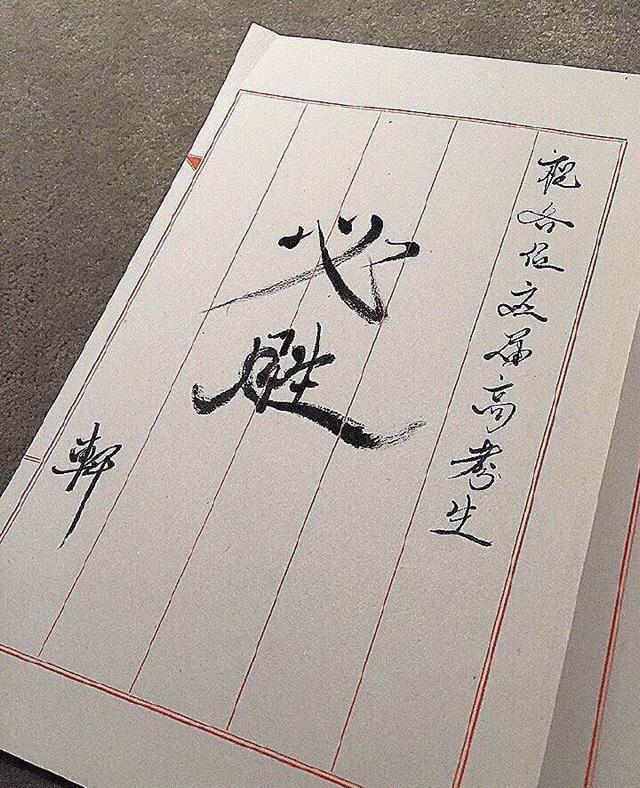 祝各位应届高考生
必胜
軒